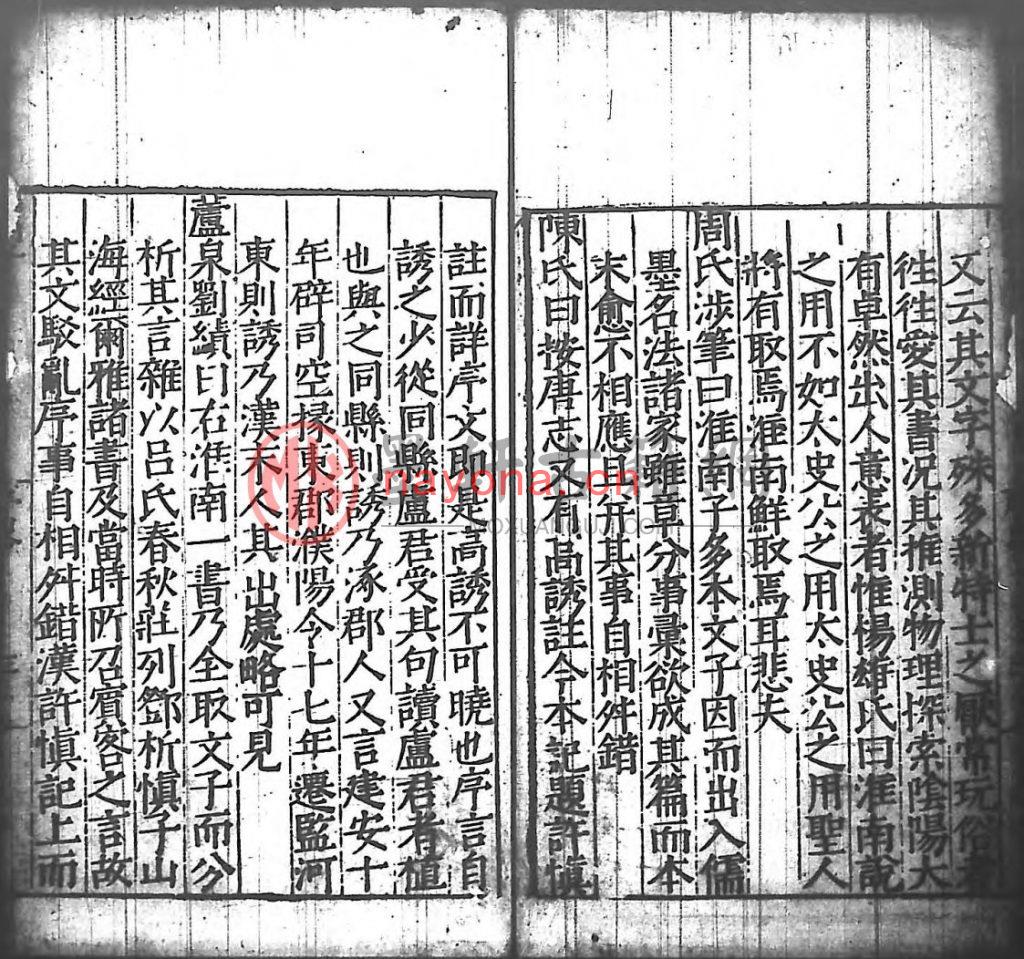 又云其文字殊多新特士之厭常玩俗者
徃徃愛其書况其推測物理探索陰陽大
有卓然出人意表者惟楊雄氏曰淮南說
之用不如太史公之用太史公之用聖人
將有取焉淮南鮮取焉耳悲夫
周氏涉筆曰淮南子多本文子因而出入儒
墨名法諸家雖章分事彙欲成其篇而本
末愈不相應且并其事自相舛錯
陳氏曰按唐志又有高誘註今本記題許愼
註而詳序文即是高誘不可曉也序言自
誘之少從同縣盧君受其句讀盧君者植
也與之同縣則誘乃涿郡人又言建安十
年辟司空掾東郡濮陽令十七年遷監河
東則誘乃漢末人其出處略可見
蘆泉劉績曰右淮南一書乃全取文子而分
析其言雜以呂氏春秋莊列鄧析愼子山
海經爾雅諸書及當時所召賓客之言故
其文駁亂序事自相舛錯漢許愼記上而
nayona.cn
MOXUANGUJI.COM